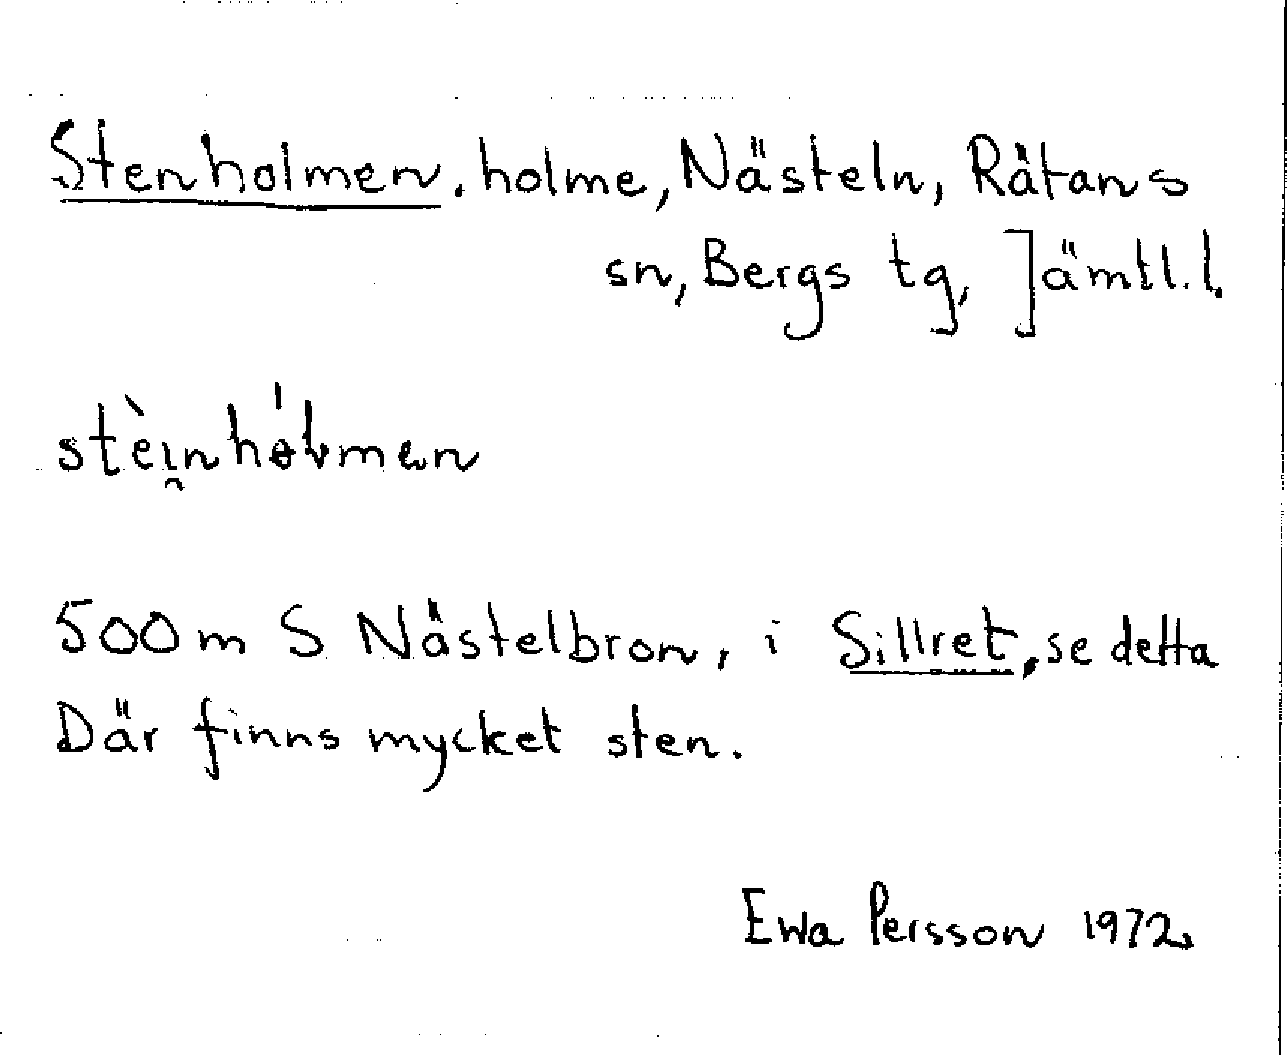 Stenholmen. holme, Nästeln, Råtans
sn, Bergs tg, Jämtl. l.
500 m S Nästelbron, i Sillret, se detta
Där finns mycket sten.
Ewa Persson 1972.